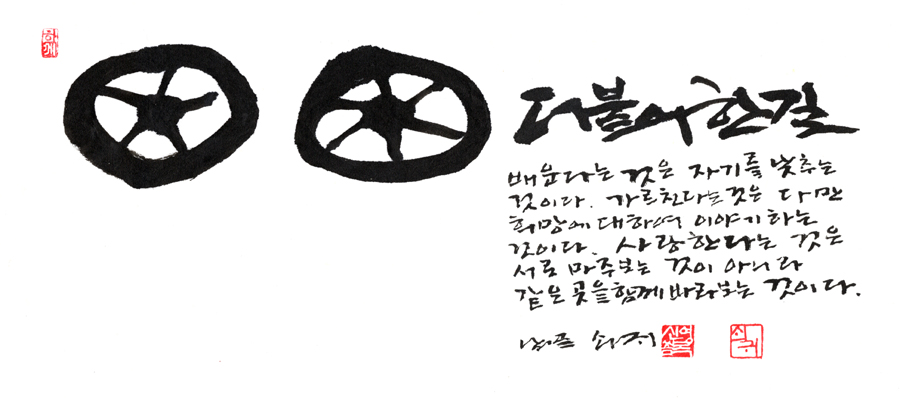 더불어한길
배운다는 것은 자기를 낮추는
것이다. 가르친다는것은 다만
희망에 대하여 이야기하는
것이다. 사랑한다는 것은
서로 마주보는 것이 아니라
같은 곳을 함께 바라보는 것이다.
쇠귀